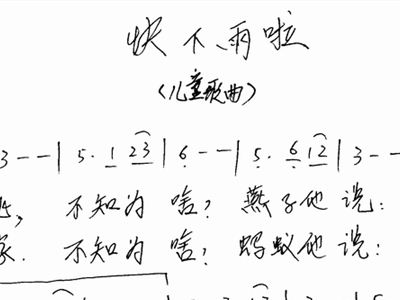 快下雨啦
(儿童歌曲)
3 - - | 5· 1 23 | 6 - - | 5· 6 12 | 3 - -
不知为啥? 燕子他说:
不知为啥? 蚂蚁他说: